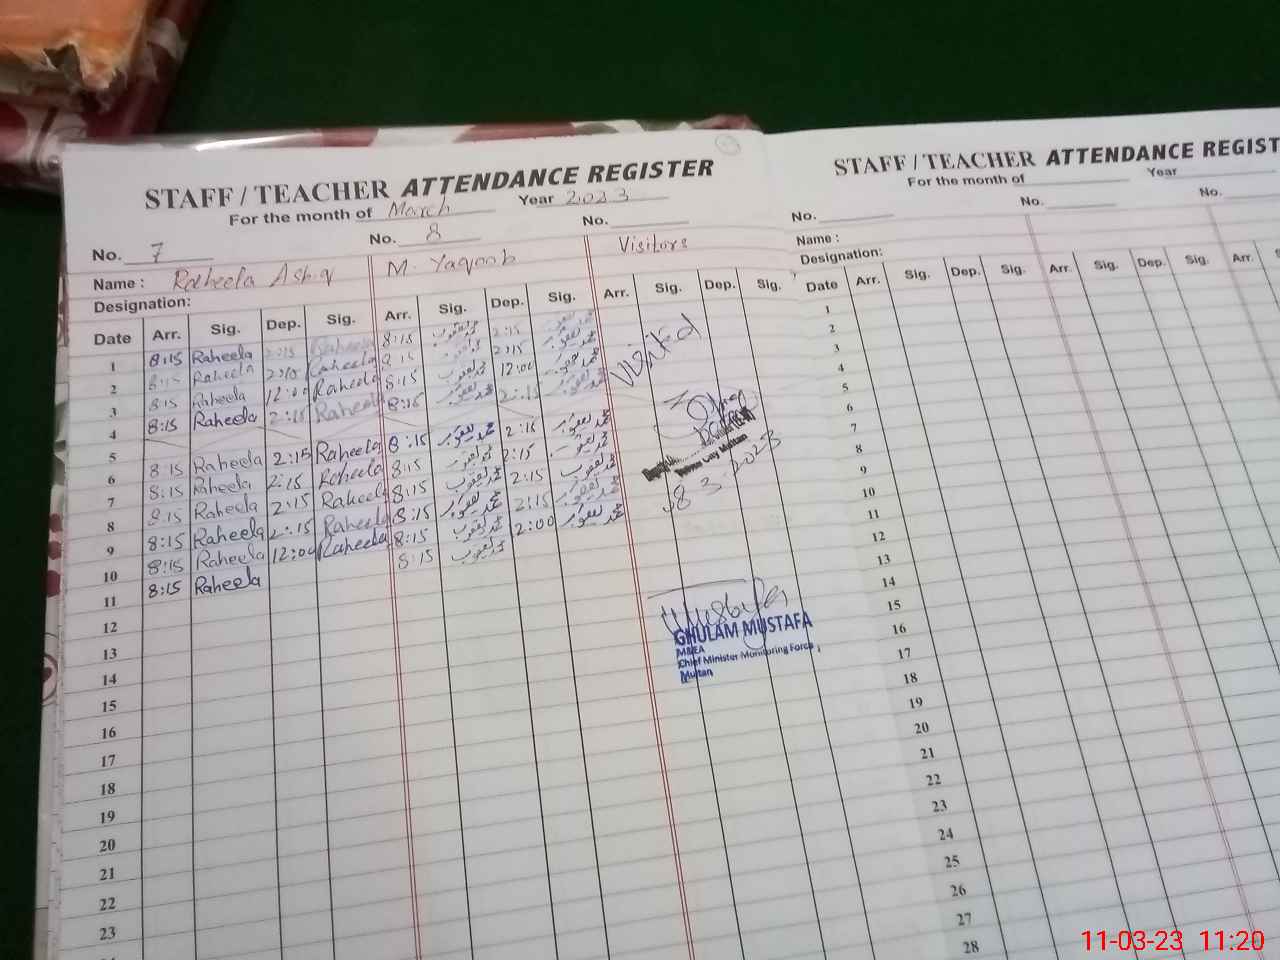 STAFF / TEACHER ATTENDANCE REGISTER
For the month of March Year 2023
No. 7 No. 8 No.
Name : Raheela Ashiq M. Yaqoob Visitors
Designation:
Date Arr. Sig. Dep. Sig. Arr. Sig. Dep. Sig. Arr. Sig. Dep. Sig.
1 8:15 Raheela 2:15 Raheela 8:15 محمد یعقوب 2:15 محمد یعقوب
2 8:15 Raheela 2:15 Raheela 8:15 محمد یعقوب 2:15 محمد یعقوب
3 8:15 Raheela 12:00 Raheela 8:15 محمد یعقوب 12:00 محمد یعقوب
4 8:15 Raheela 2:15 Raheela 8:15 محمد یعقوب 2:15 محمد یعقوب
5
6 8:15 Raheela 2:15 Raheela 8:15 محمد یعقوب 2:15 محمد یعقوب
7 8:15 Raheela 2:15 Raheela 8:15 محمد یعقوب 2:15 محمد یعقوب
8 8:15 Raheela 2:15 Raheela 8:15 محمد یعقوب 2:15 محمد یعقوب
9 8:15 Raheela 2:15 Raheela 8:15 محمد یعقوب 2:15 محمد یعقوب
10 8:15 Raheela 12:00 Raheela 8:15 محمد یعقوب 2:00 محمد یعقوب
11 8:15 Raheela 8:15 محمد یعقوب
12
13
14
15
16
17
18
19
20
21
22
23
Visited
Multan
8.3.2023
GHULAM MUSTAFA
MEA
Chief Minister Monitoring Force
Multan
STAFF / TEACHER ATTENDANCE REGIST
For the month of Year
No. No. No.
Name :
Designation:
Date Arr. Sig. Dep. Sig. Arr. Sig. Dep. Sig. Arr. S
1
2
3
4
5
6
7
8
9
10
11
12
13
14
15
16
17
18
19
20
21
22
23
24
25
26
27
28
11-03-23 11:20